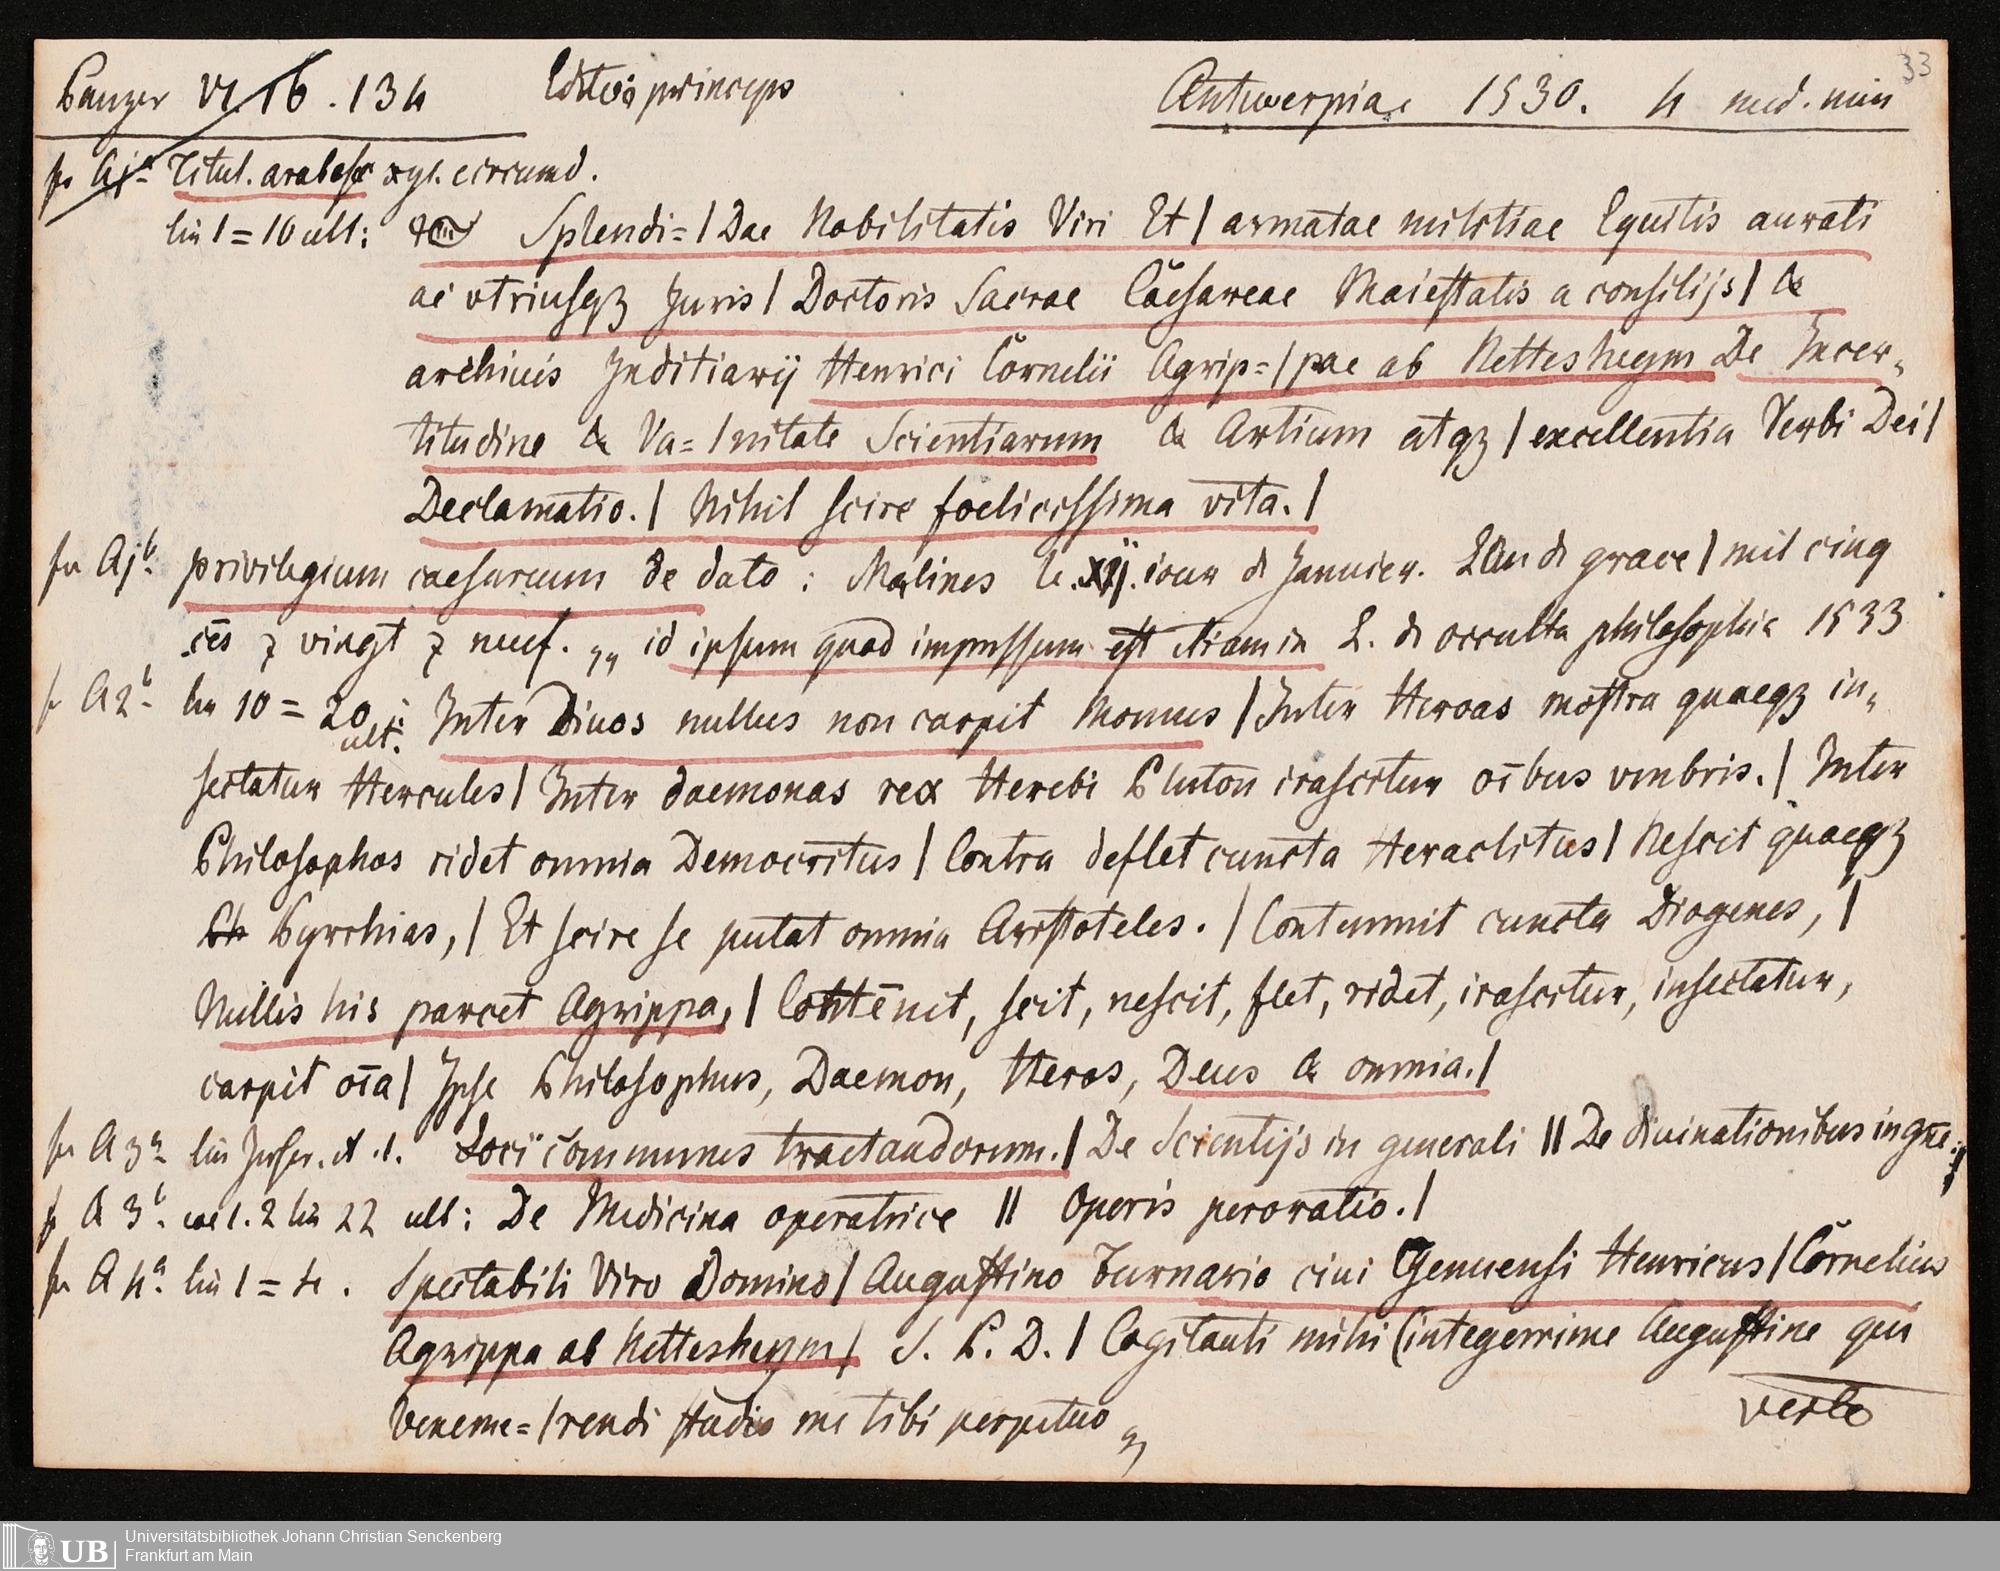 Panzer VI 16. 134 Editio princeps Antwerpiae 1530. 4 med. min 33
fo Aj a Titul. arabesc xyl. circumd.
lin 1 = 10 ult: Splendi= | Dae Nobilitatis Viri Et | armatae militiae Equitis aurati
ac vtriusqȝ Juris | Doctoris Sacrae Caesareae Maiestatis a consilijs | &
archiuis Inditiarij Henrici Cornelii Agrip= | pae ab Nettesheym De Incer-
titudine & Va= | nitate Scientiarum & Artium atqȝ | excellentia Verbi Dei |
Declamatio. | Nihil scire foelicissima vita. |
fo Aj b. privilegium caesareum de dato: Malines le .xij. iour d Januier. LAn d grace | mil cinq
cēs ⁊ vingt ⁊ neuf. „ id ipsum quod impressum est etiam in L. d occulta philosophia 1533
f A2 b lin 10 = 20 ult: Inter Diuos nullus non carpit Momus | Inter Heroas mostra quaeqȝ in-
sectatur Hercules | Inter daemonas rex Herebi Pluton irascitur oībus vmbris. | Inter
Philosophos ridet omnia Democritus | Contra deflet cuncta Heraclitus | Nescit quaeqȝ
Ph Pyrrhias, | Et scire se putat omnia Aristoteles. | Contemnit cuncta Diogenes, |
Nullis his parcet Agrippa, | Contēnit, scit, nescit, flet, ridet, irascitur, insectatur,
carpit oīa | Ipse Philosophus, Daemon, Heros, Deus & omnia. |
fo A 3 a lin Loci communes tractandorum. | De Scientijs in generali || De diuinationibus in gn̄e.
f A 3 b. col. 2 lin 22 ult: De Medicina operatrice || Operis peroratio. |
fo A 4 a. lin 1 = 4. Spectabili Viro Domino | Augustino Furnario ciui Genuensi Henricus | Cornelius
Agrippa ab Nettesheym | S. P. D. | Cogitanti mihi (integerrime Augustine qui
veneme= | rendi studio me tibi perpetuo „
verte
Universitätsbibliothek Johann Christian Senckenberg
UB Frankfurt am Main